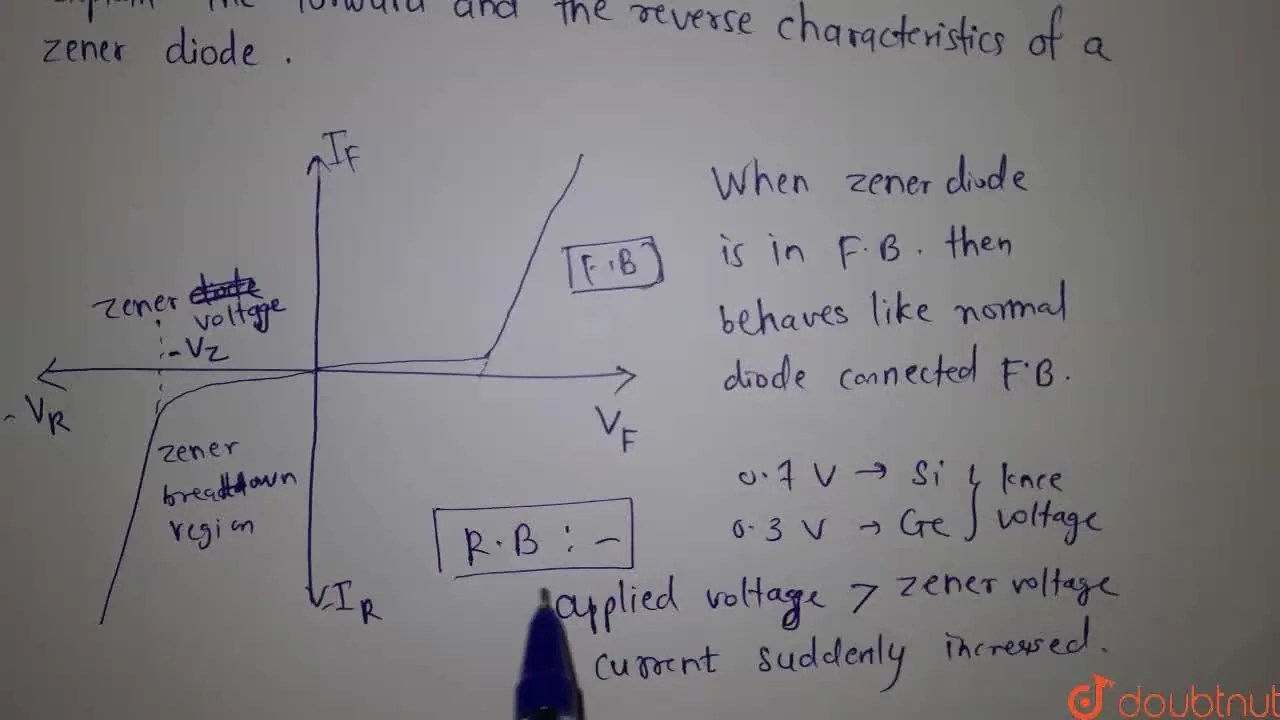 the forward and the reverse characteristics of a
zener diode.
IF
When zener diode
is in F.B. then
behaves like normal
diode connected F.B.
F.B
zener
voltage
-VZ
-VR
VF
zener
breakdown
region
0.7 V → Si } knee
0.3 V → Ge } voltage
R.B :-
-IR
applied voltage > zener voltage
current suddenly increased.
doubtnut